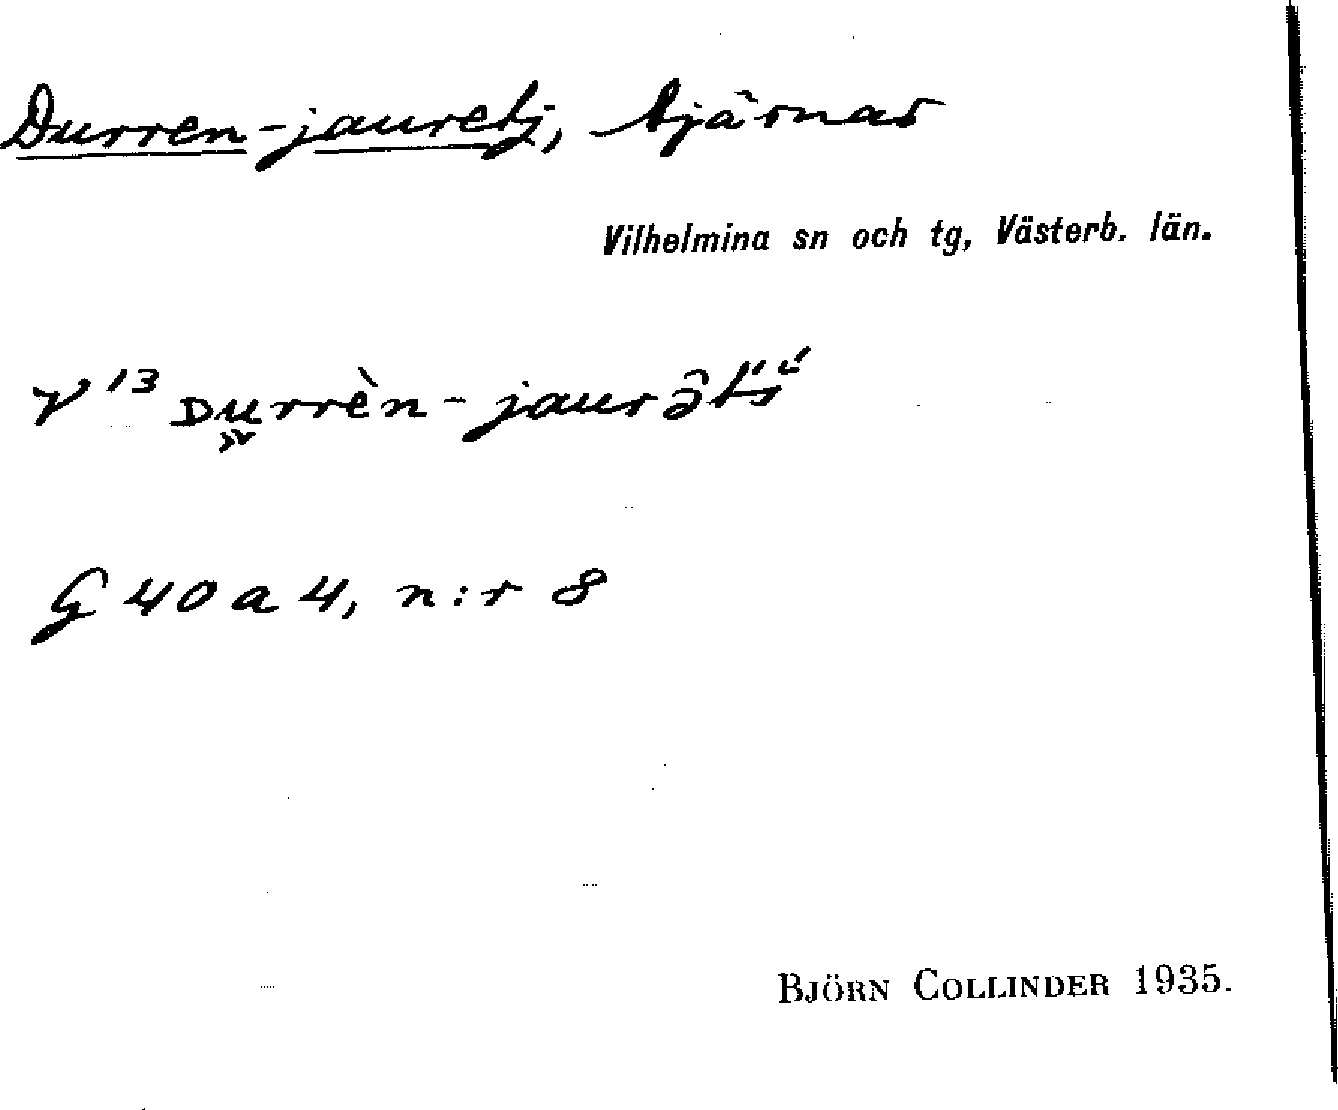 Durren-jauretj, tjärnar
Vilhelmina sn och tg, Västerb. län.
V 13 Durrèn-
G 40 a 4, n:r 8
BJÖRN COLLINDER 1935.